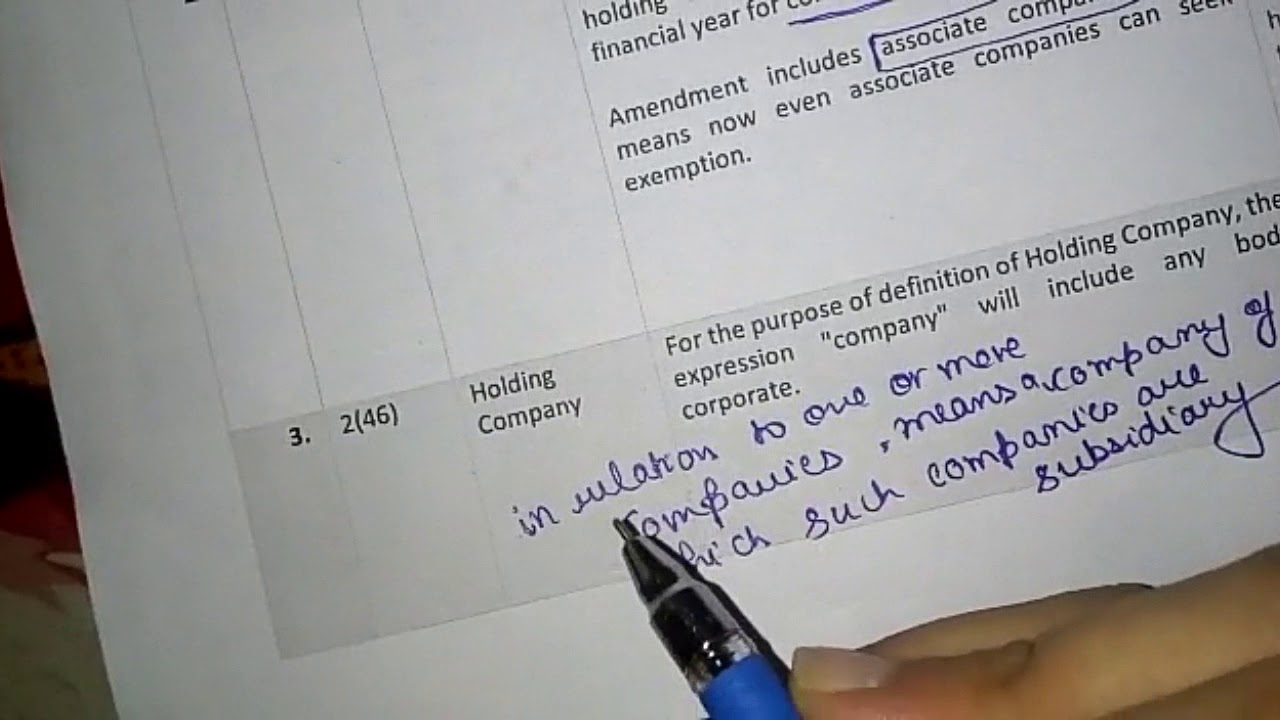 holding
financial year for
Amendment includes associate
means now even associate companies can seek
exemption.
3.
2(46)
Holding
Company
For the purpose of definition of Holding Company, the
expression "company" will include any
corporate.
in relation to one or more
companies, means a company of
which such companies are
subsidiary